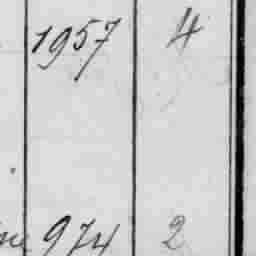 1957 4
974 2